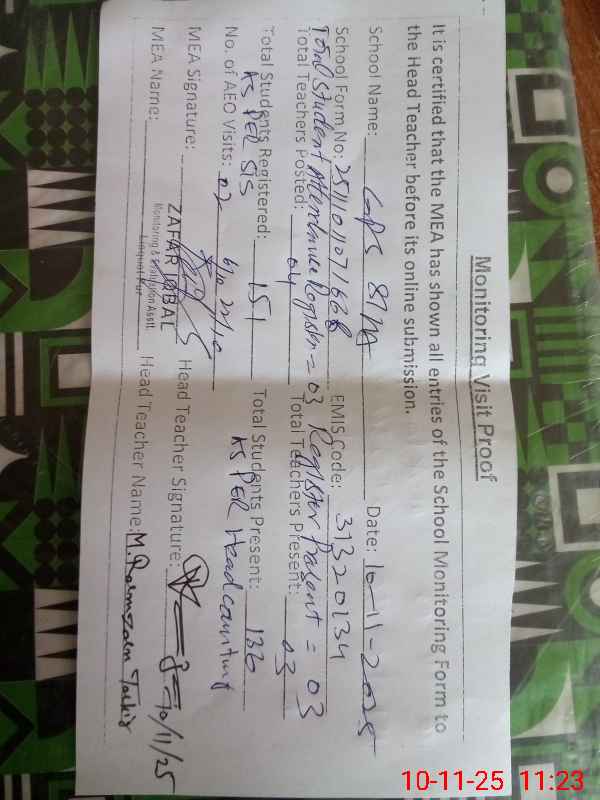 Monitoring Visit Proof
It is certified that the MEA has shown all entries of the School Monitoring Form to
the Head Teacher before its online submission.
School Name: GPS 87/A Date: 10-11-2025
School Form No: EMIS Code: 31320134
Total Student Attendance Register = 03 Register Present = 03
Total Teachers Posted: 04 Total Teachers Present: 03
Total Students Registered: 151 Total Students Present: 136
AS PER SIS AS PER Head counting
No. of AEO Visits: 02
MEA Signature: Head Teacher Signature: 10/11/25
ZAFAR IQBAL
Monitoring & Evaluation Asstt.
Liaquat Pur
MEA Name: Head Teacher Name: M. Ramzan Tahir
10-11-25 11:23